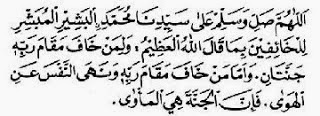 اَللّٰهُمَّ صَلِّ وَسَلِّمْ عَلٰى سَيِّدِنَا مُحَمَّدِ ۨالْبَشِيْرِ الْمُبَشِّرِ
لِلْخَائِفِيْنَ بِمَا قَالَ اللّٰهُ الْعَظِيْمُ . وَلِمَنْ خَافَ مَقَامَ رَبِّهِ
جَنَّتَانِ . وَاَمَّا مَنْ خَافَ مَقَامَ رَبِّهِ وَنَهَى النَّفْسَ عَنِ
الْهَوٰى . فَاِنَّ الْجَنَّةَ هِيَ الْمَأْوٰى .